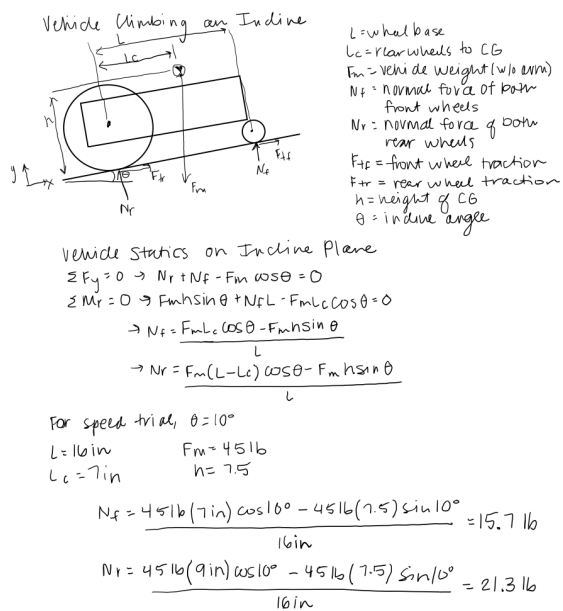 Vehicle Climbing an Incline
L
Lc
h
y
x
θ
Ftr
Nr
Fm
Nf
Ftf
L = wheel base
Lc = rear wheels to CG
Fm = vehicle weight (w/o arm)
Nf = normal force of both
front wheels
Nr = normal force of both
rear wheels
Ftf = front wheel traction
Ftr = rear wheel traction
h = height of CG
θ = incline angle
Vehicle Statics on Incline Plane
ΣFy = 0 → Nr + Nf - Fm cosθ = 0
ΣMr = 0 → Fmh sinθ + NfL - FmLc cosθ = 0
→ Nf = FmLc cosθ - Fmh sinθ
L
→ Nr = Fm(L-Lc) cosθ - Fm h sinθ
L
For speed trial, θ = 10°
L = 16in Fm = 45lb
Lc = 7in h = 7.5
Nf = 45lb(7in) cos10° - 45lb(7.5) sin10° = 15.7 lb
16in
Nr = 45lb(9in) cos10° - 45lb(7.5) sin10° = 21.3 lb
16in